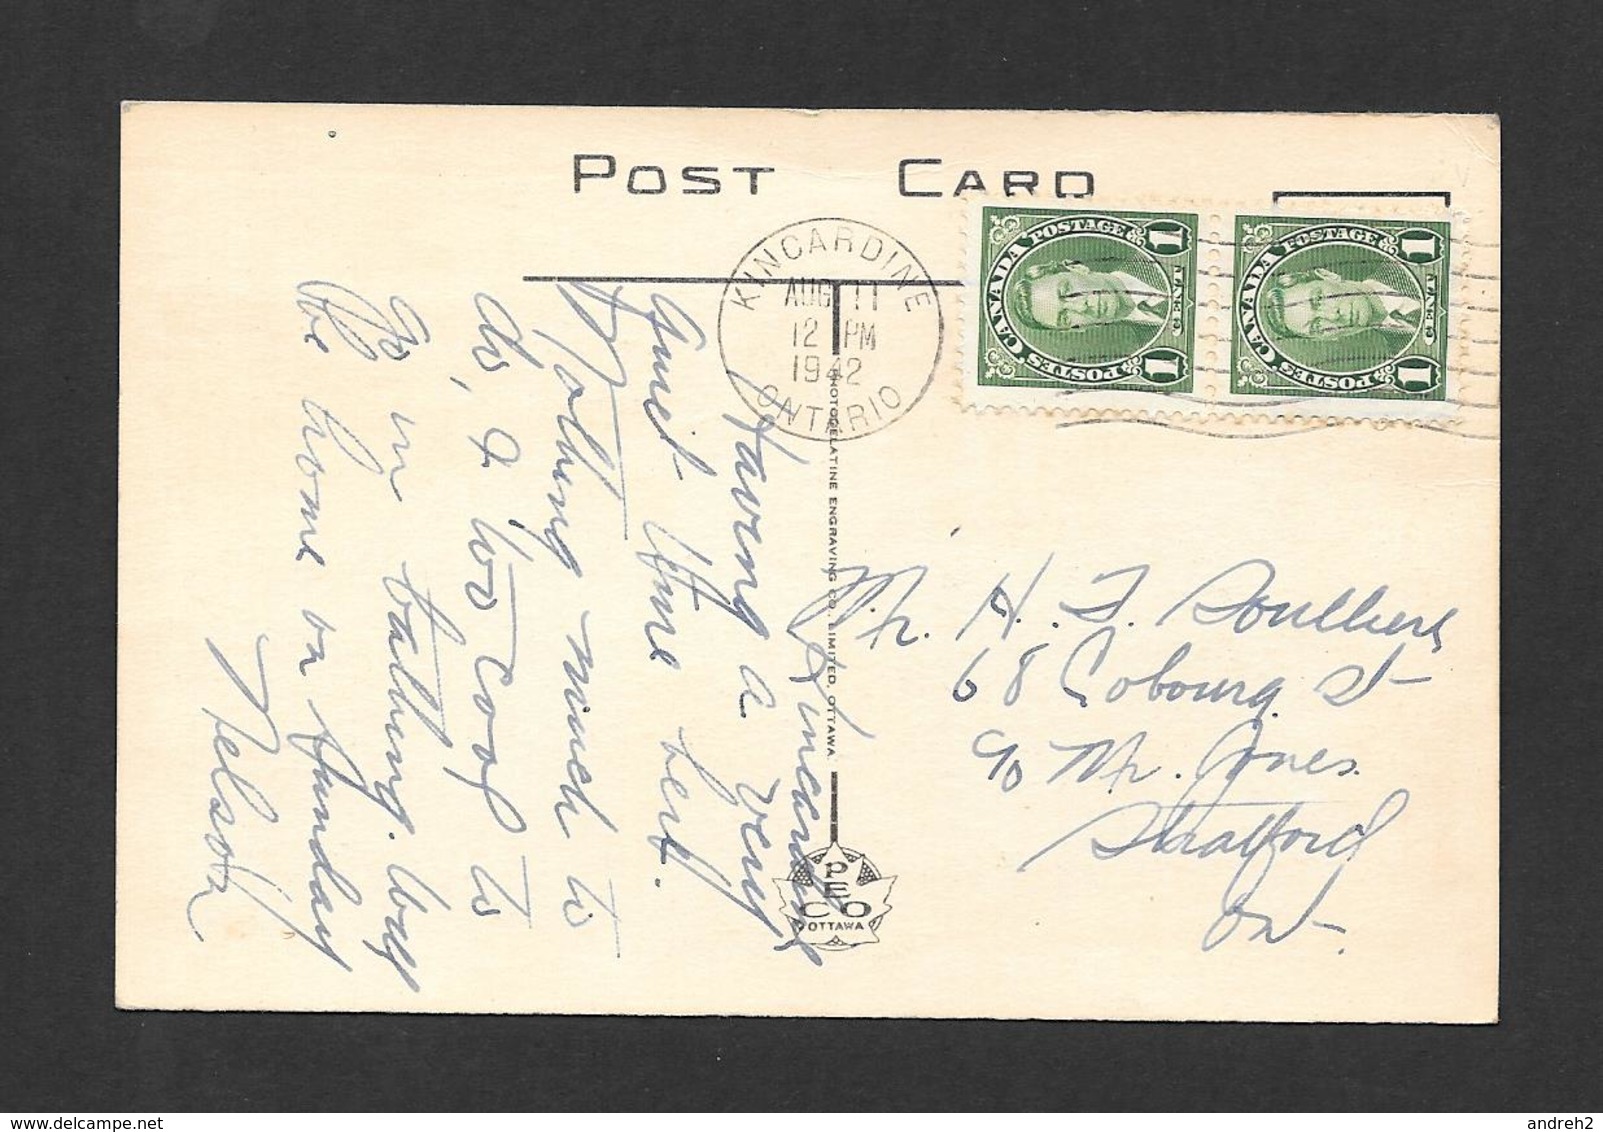 POST CARD
KINCARDINE
AUG 11
12 PM
1942
ONTARIO
CANADA POSTAGE
POSTES
1 1
CANADA POSTAGE
POSTES
1 1
PHOTOGELATINE ENGRAVING CO., LIMITED, OTTAWA.
PECO
OTTAWA
Kincardine
Having a very
quiet time here.
Nothing much to
do, & too cool to
go in bathing. Will
be home on Sunday
Nelson
Mr. H. F.
68 Cobourg St
c/o Mr. Jones.
Stratford
Ont.
andreh2